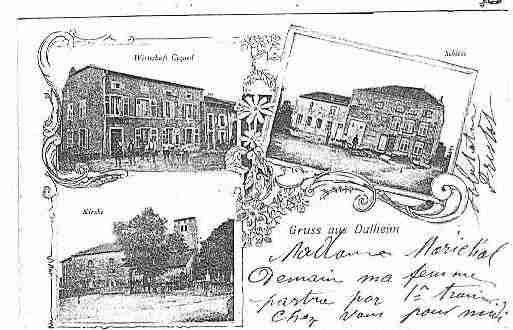 Wirtschaft
Schloss
Kirche
Gruss aus Dalheim
Madame Maréchal
Demain ma femme
partra par 1r train
Chez vous pour midi